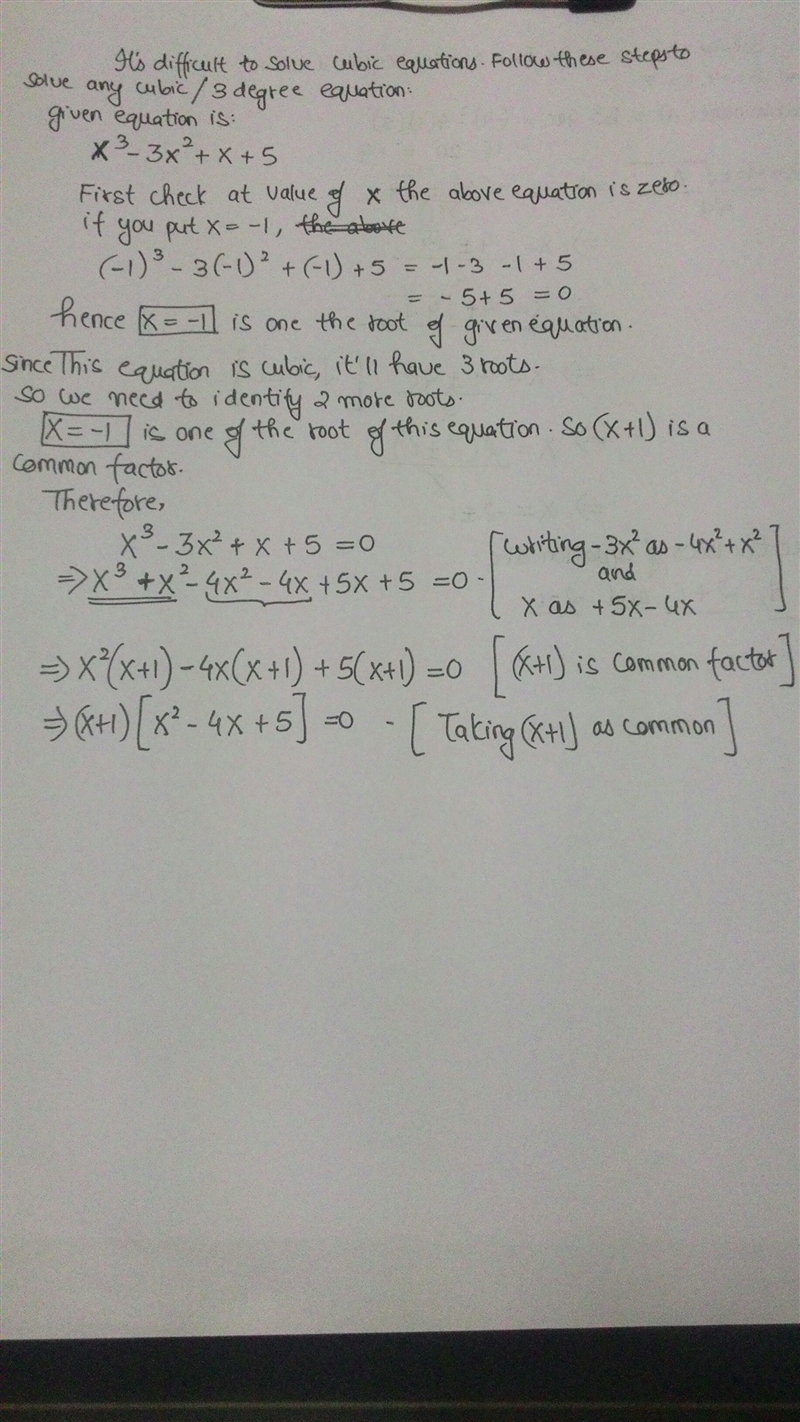 It's difficult to solve cubic equations. Follow these steps to
solve any cubic/3 degree equation:
given equation is:
x³ - 3x² + x + 5
First check at value of x the above equation is zero.
if you put x = -1, the above
(-1)³ - 3(-1)² + (-1) + 5 = -1 - 3 - 1 + 5
= - 5 + 5 = 0
hence x = -1 is one the root of given equation.
Since This equation is cubic, it'll have 3 roots.
So we need to identify 2 more roots.
x = -1 is one of the root of this equation. So (x+1) is a
common factor.
Therefore,
x³ - 3x² + x + 5 = 0
⇒ x³ + x² - 4x² - 4x + 5x + 5 = 0 - [writing -3x² as -4x² + x²
and
x as +5x - 4x]
⇒ x²(x+1) - 4x(x+1) + 5(x+1) = 0 [(x+1) is common factor]
⇒ (x+1)[x² - 4x + 5] = 0 - [Taking (x+1) as common]